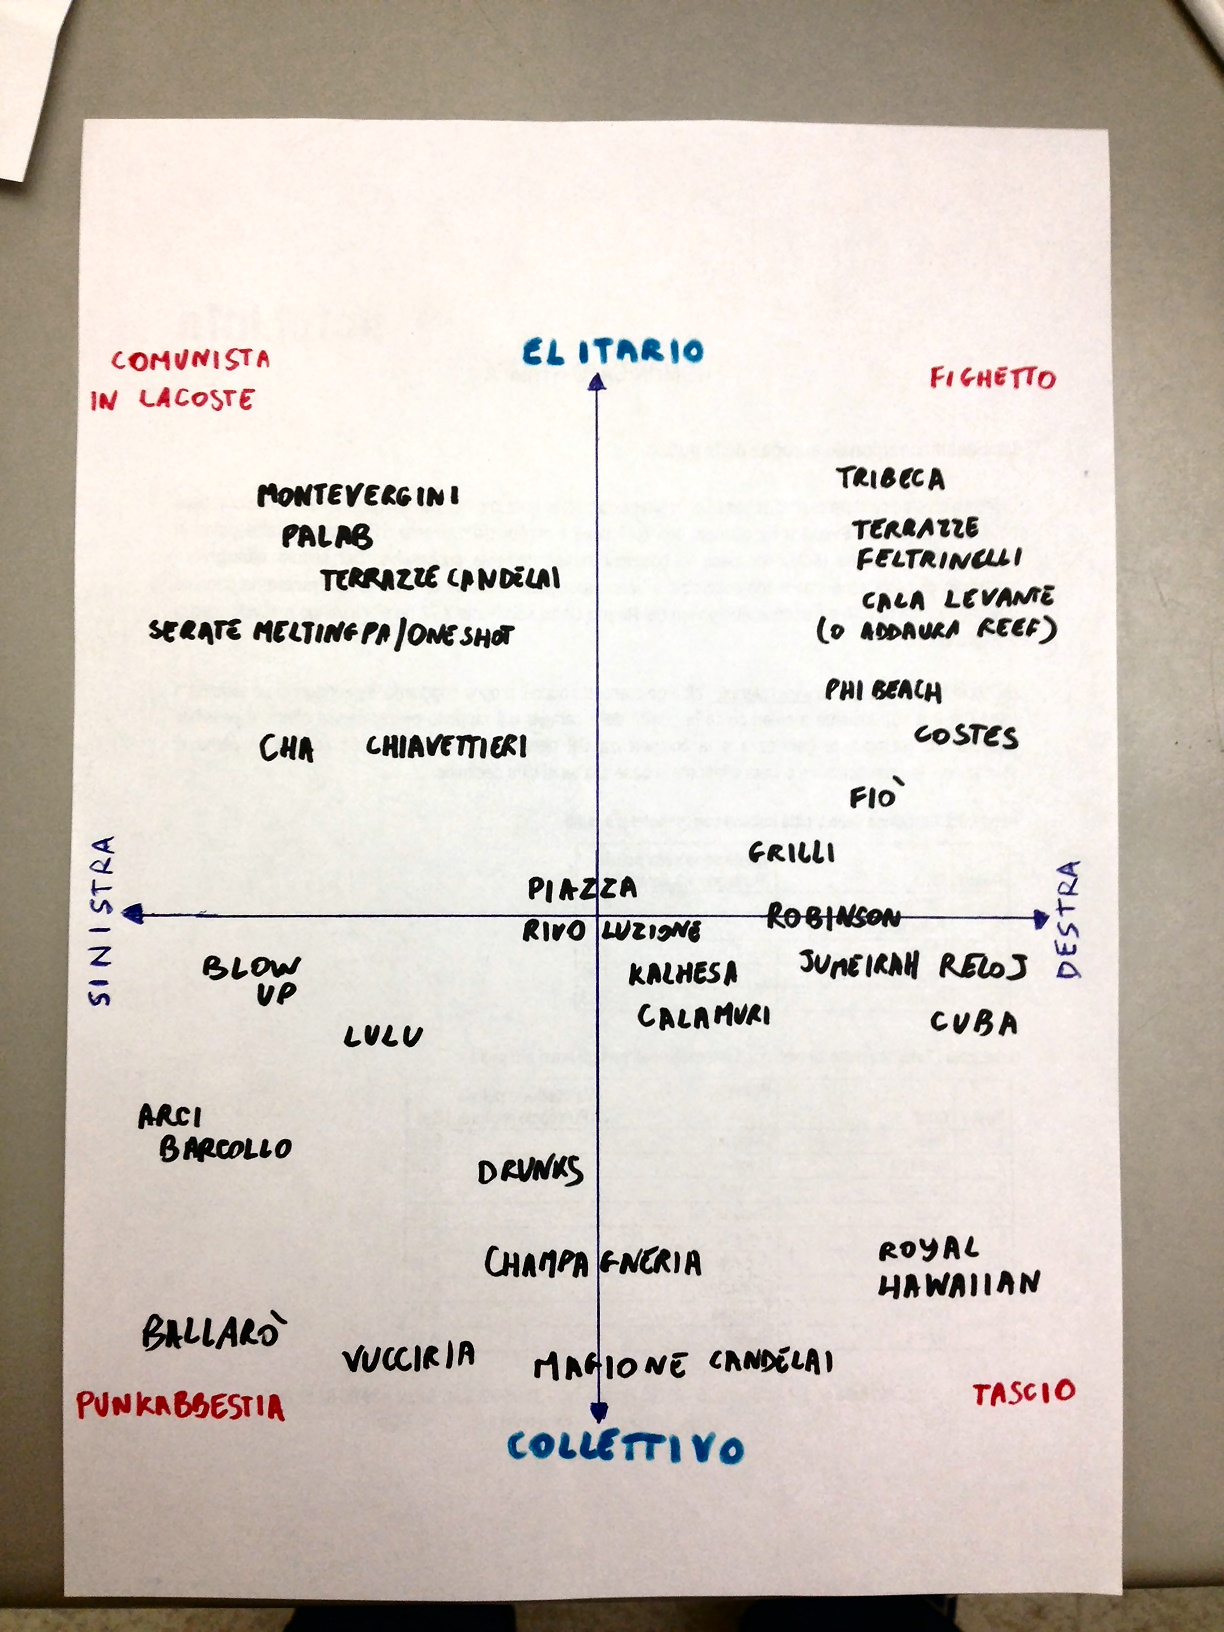 ELITARIO
COMUNISTA
IN LACOSTE
FIGHETTO
MONTEVERGINI
PALAB
TERRAZZE CANDELAI
SERATE MELTINGPA/ONE SHOT
CHA CHIAVETTIERI
TRIBECA
TERRAZZE
FELTRINELLI
CALA LEVANTE
(O ADDAURA REEF)
PHI BEACH
COSTES
FIÒ
GRILLI
SINISTRA
PIAZZA
RIVOLUZIONE
ROBINSON
DESTRA
BLOW
UP
LULU
KALHESA
CALAMURI
JUMEIRAH RELOJ
CUBA
ARCI
BARCOLLO
DRUNKS
CHAMPAGNERIA
ROYAL
HAWAIIAN
BALLARÒ
VUCCIRIA
MAGIONE CANDELAI
PUNKABBESTIA
TASCIO
COLLETTIVO